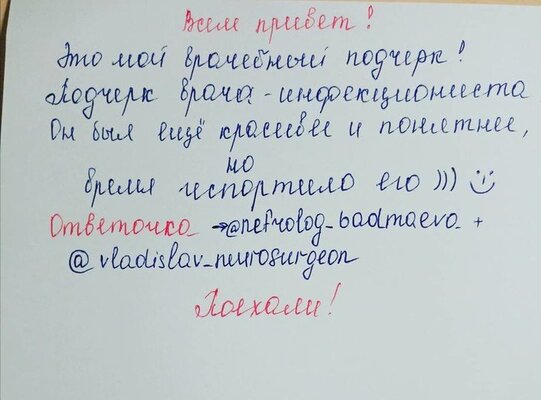 Всем привет!
Это мой врачебный подчерк!
Подчерк врача-инфекциониста
Он был ещё красивее и понятнее,
но
время испортило его ))) :)
Ответочка → @nefrolog_badmaeva +
@vladislav_neurosurgeon
Поехали!